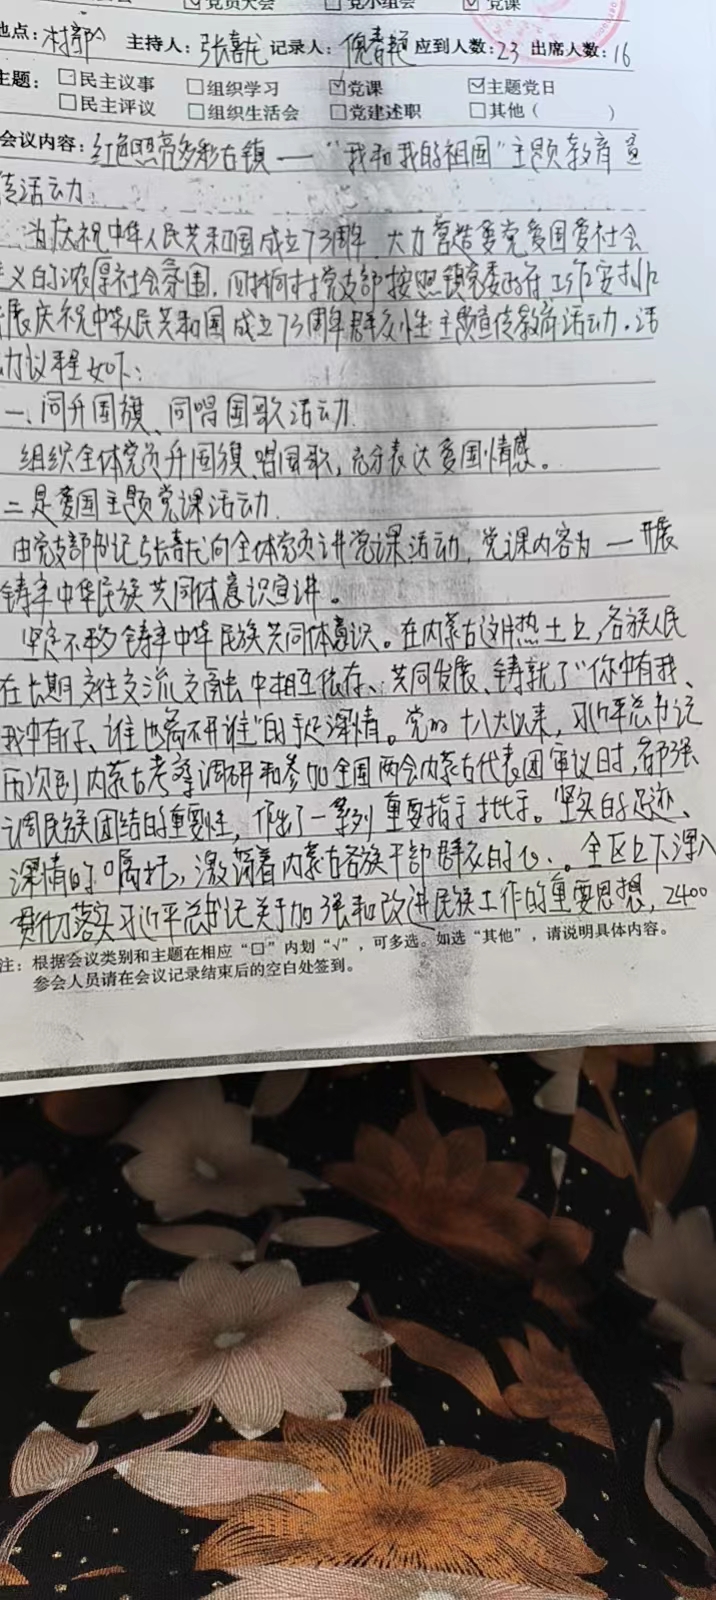 ☑党员大会 □党小组会 ☑党课
地点：村部 主持人：张喜龙 记录人：倪春艳 应到人数：23 出席人数：16
主题：□民主议事 □组织学习 ☑党课 ☑主题党日
□民主评议 □组织生活会 □党建述职 □其他（ ）
会议内容：红色照亮多彩古镇——“我和我的祖国”主题教育宣
传活动
为庆祝中华人民共和国成立73周年，大力营造爱党爱国爱社会
主义的浓厚社会氛围，村党支部按照镇党委政府工作安排
开展庆祝中华人民共和国成立73周年群众性主题宣传教育活动。活
动议程如下：
一、同升国旗、同唱国歌活动
组织全体党员升国旗、唱国歌，充分表达爱国情感。
二是爱国主题党课活动
由党支部书记张喜龙向全体党员讲党课活动，党课内容为——开展
铸牢中华民族共同体意识宣讲。
坚定不移铸牢中华民族共同体意识。在内蒙古这片热土上，各族人民
在长期交往交流交融中相互依存、共同发展、铸就了“你中有我、
我中有你、谁也离不开谁”的手足深情。党的十八大以来，习近平总书记
历次到内蒙古考察调研和参加全国两会内蒙古代表团审议时，都强
调民族团结的重要性，作出了一系列重要指示批示。坚实的足迹、
深情的嘱托，激荡着内蒙古各族干部群众的心。全区上下深入
贯彻落实习近平总书记关于加强和改进民族工作的重要思想，2400
注：根据会议类别和主题在相应“□”内划“√”，可多选。如选“其他”，请说明具体内容。
参会人员请在会议记录结束后的空白处签到。